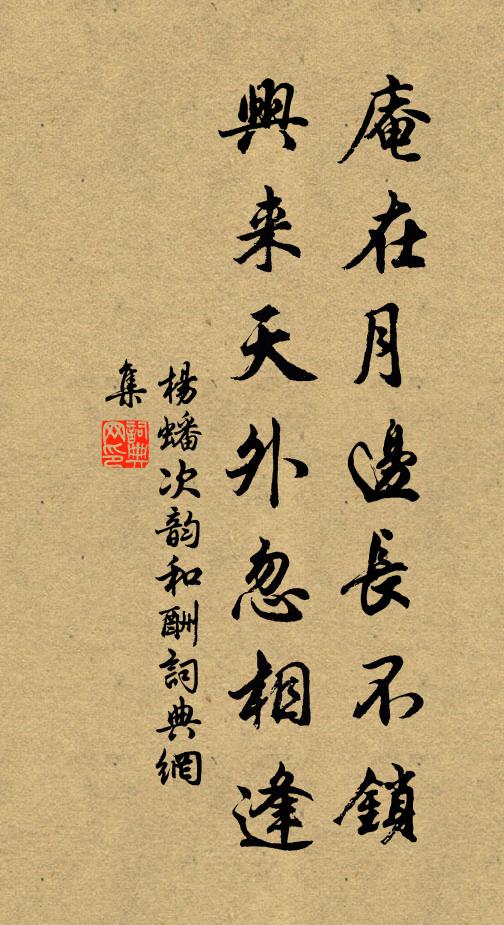 庵在月邊長不鎖
興来天外忽相逢
楊蟠次韵和酬詞典網
集
詞典
网印